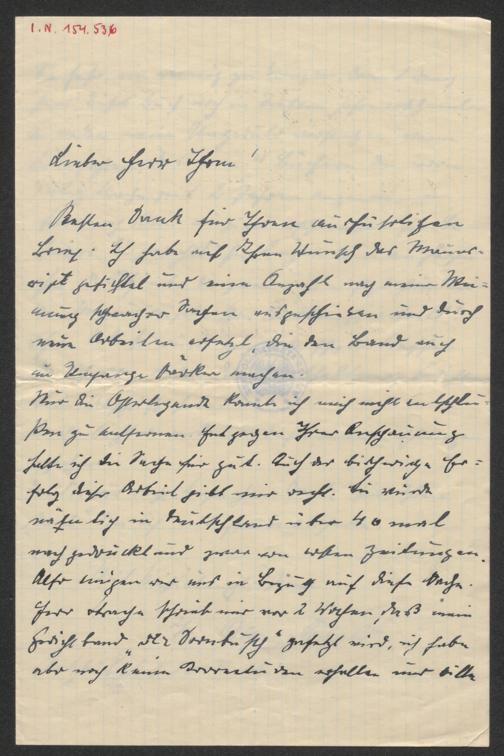 I.N. 154.536
Lieber Herr Thom!
Besten Dank für Ihren ausführlichen
Brief. Ich habe auf Ihren Wunsch das Manus-
kript gesichtet und eine Anzahl nach meiner Mei-
nung schwacher Sachen ausgeschieden und durch
neue Arbeiten ersetzt, die den Band auch
im Umfange stärker machen.
Nur die Osterlegende konnte ich mich nicht entschlie-
ßen zu entfernen. Entgegen Ihrer Anschauung
halte ich die Sache für gut. Auch der bisherige Er-
folg dieser Arbeit gibt mir recht. Sie wurde
nämlich in Deutschland über 40 mal
nachgedruckt und zwar von ersten Zeitungen.
Also mögen wir uns in Bezug auf diese Sache.
Herr schrieb mir vor 2 Wochen, daß mein
Gedichtband „Der Dornbusch“ gesetzt wird, ich habe
aber noch keine Korrekturen erhalten und bitte